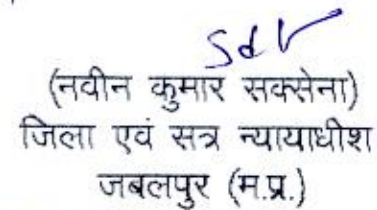 Sd/
(नवीन कुमार सक्सेना)
जिला एवं सत्र न्यायाधीश
जबलपुर (म.प्र.)